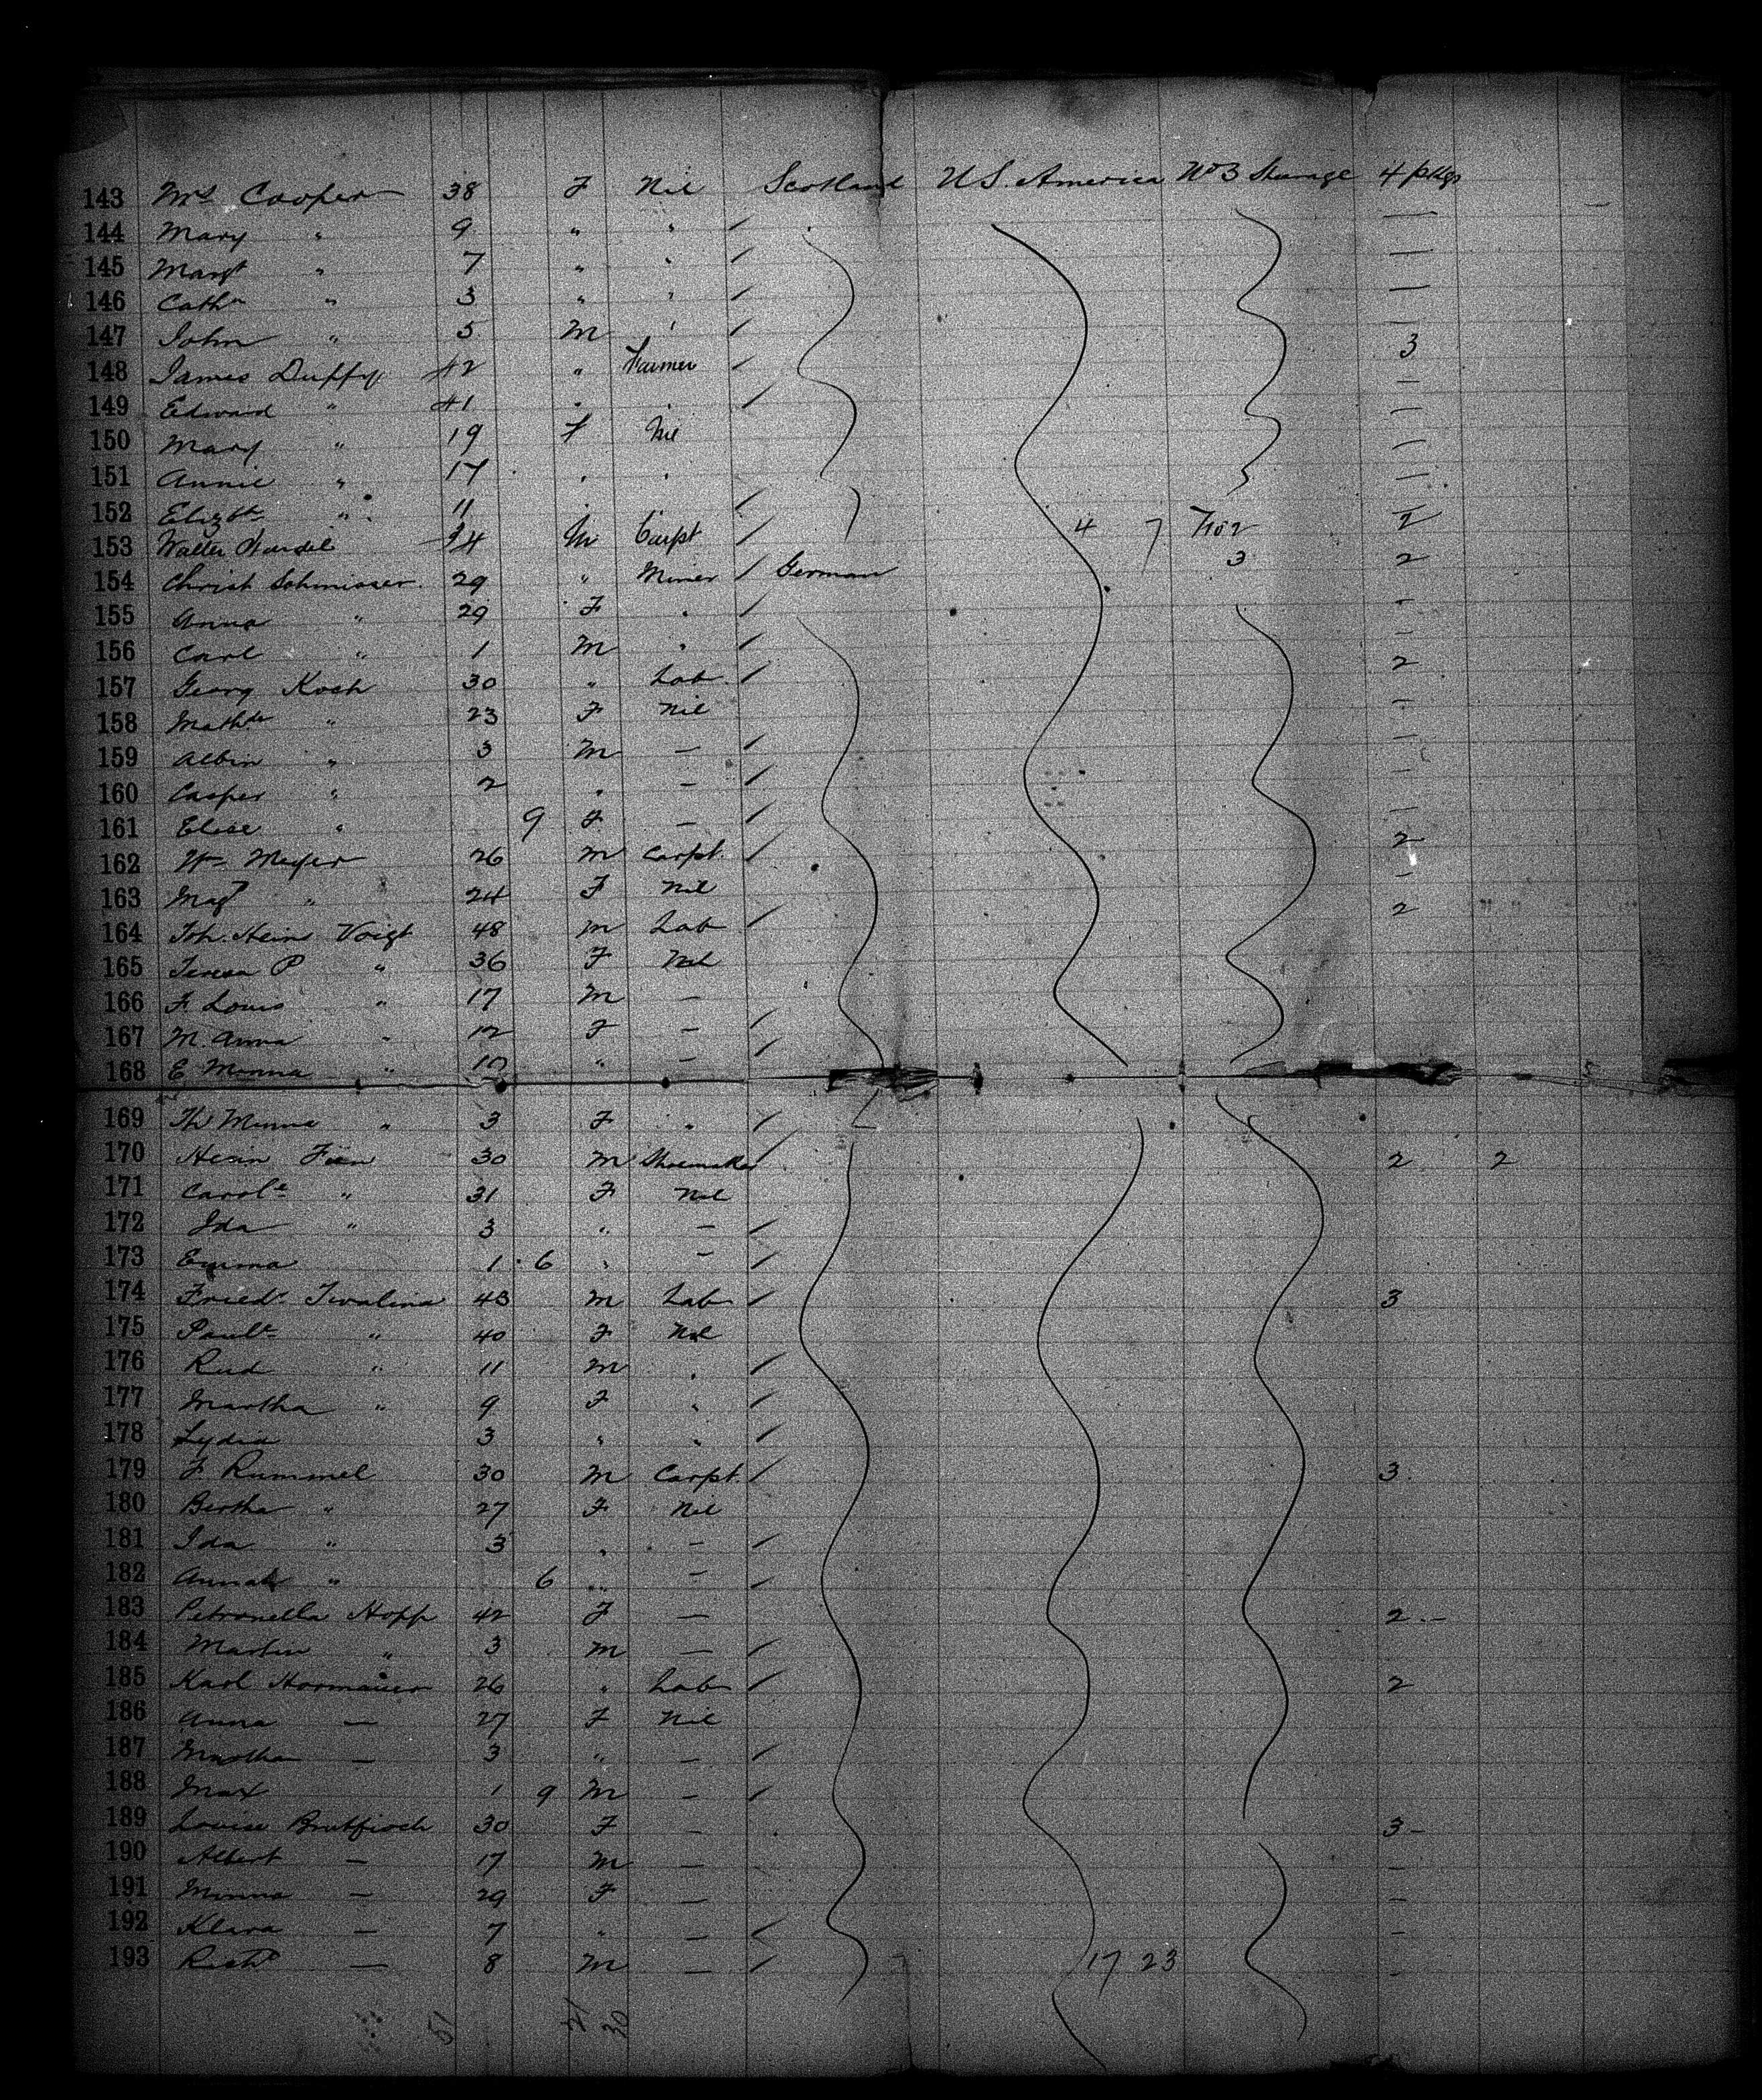 143 Mrs Cooper 38 F Nil Scotland U.S. America No 3 Steerage 4 pkgs
144 Mary " 9 " "
145 Margt " 7 " "
146 Cathn " 3 " "
147 John " 5 M "
148 James Duffy 42 " Farmer 3
149 Edward " 41 " "
150 Mary " 19 F Nil
151 Annie " 17 " "
152 Elizth " 11 "
153 Walter 34 M Carpt 4 7 No 2 1
154 Christ Schmisser 29 " Miner German 3 2
155 Anna " 29 F "
156 Carl " 1 M "
157 Georg Koch 30 " Lab 2
158 Mathde " 23 F Nil
159 Albin " 3 M —
160 Casper " 2 " —
161 Elise " 9 F —
162 Wm Meyer 26 M Carpt. 2
163 Magd " 24 F Nil
164 Joh. Hein Voigt 48 M Lab 2
165 Teresa P " 36 F Nil
166 F. Louis " 17 M —
167 M. Anna " 12 F —
168 E Minna " 10 " —
169 Th Minna " 3 F "
170 Hein Fien 30 M Shoemaker 2 2
171 Carole " 31 F Nil
172 Ida " 3 " —
173 Emma 1 . 6 " —
174 Friedr Twalina 43 M Lab 3
175 Paulе " 40 F Nil
176 Rud " 11 M "
177 Martha " 9 F "
178 Lydia 3 " "
179 F. Rummel 30 M Carpt. 3
180 Bertha " 27 F Nil
181 Ida " 3 " —
182 Annah " 6 " —
183 Petronella Hopp 42 F — 2 —
184 Martin " 3 M —
185 Karl Hormauer 26 " Lab 2
186 Anna — 27 F Nil
187 Martha — 3 " —
188 Max 1 9 M —
189 Louise 30 F — 3 —
190 Albert — 17 M —
191 Minna — 29 F —
192 Klara — 7 " —
193 Richd — 8 M — 17 23
51 21 30